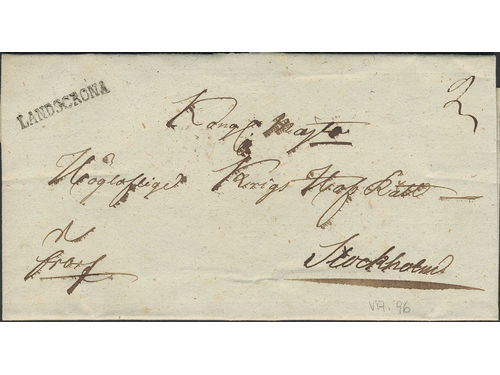 LANDSCRONA
2
Kongl. Majts
Höglofliget Krigs Hof Rätt
Stockholm
VIA. 96